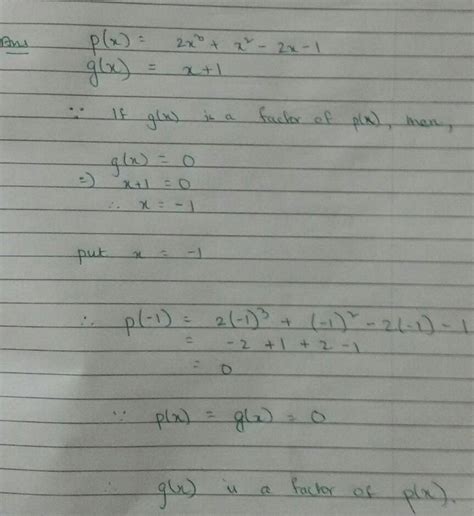 Ans p(x) = 2x³ + x² - 2x - 1
g(x) = x+1
∵ If g(x) is a factor of p(x), then,
g(x) = 0
=) x+1 = 0
∴ x = -1
put x = -1
∴ p(-1) = 2(-1)³ + (-1)² - 2(-1) - 1
= -2 + 1 + 2 - 1
= 0
∵ p(x) = g(x) = 0
∴ g(x) is a factor of p(x).